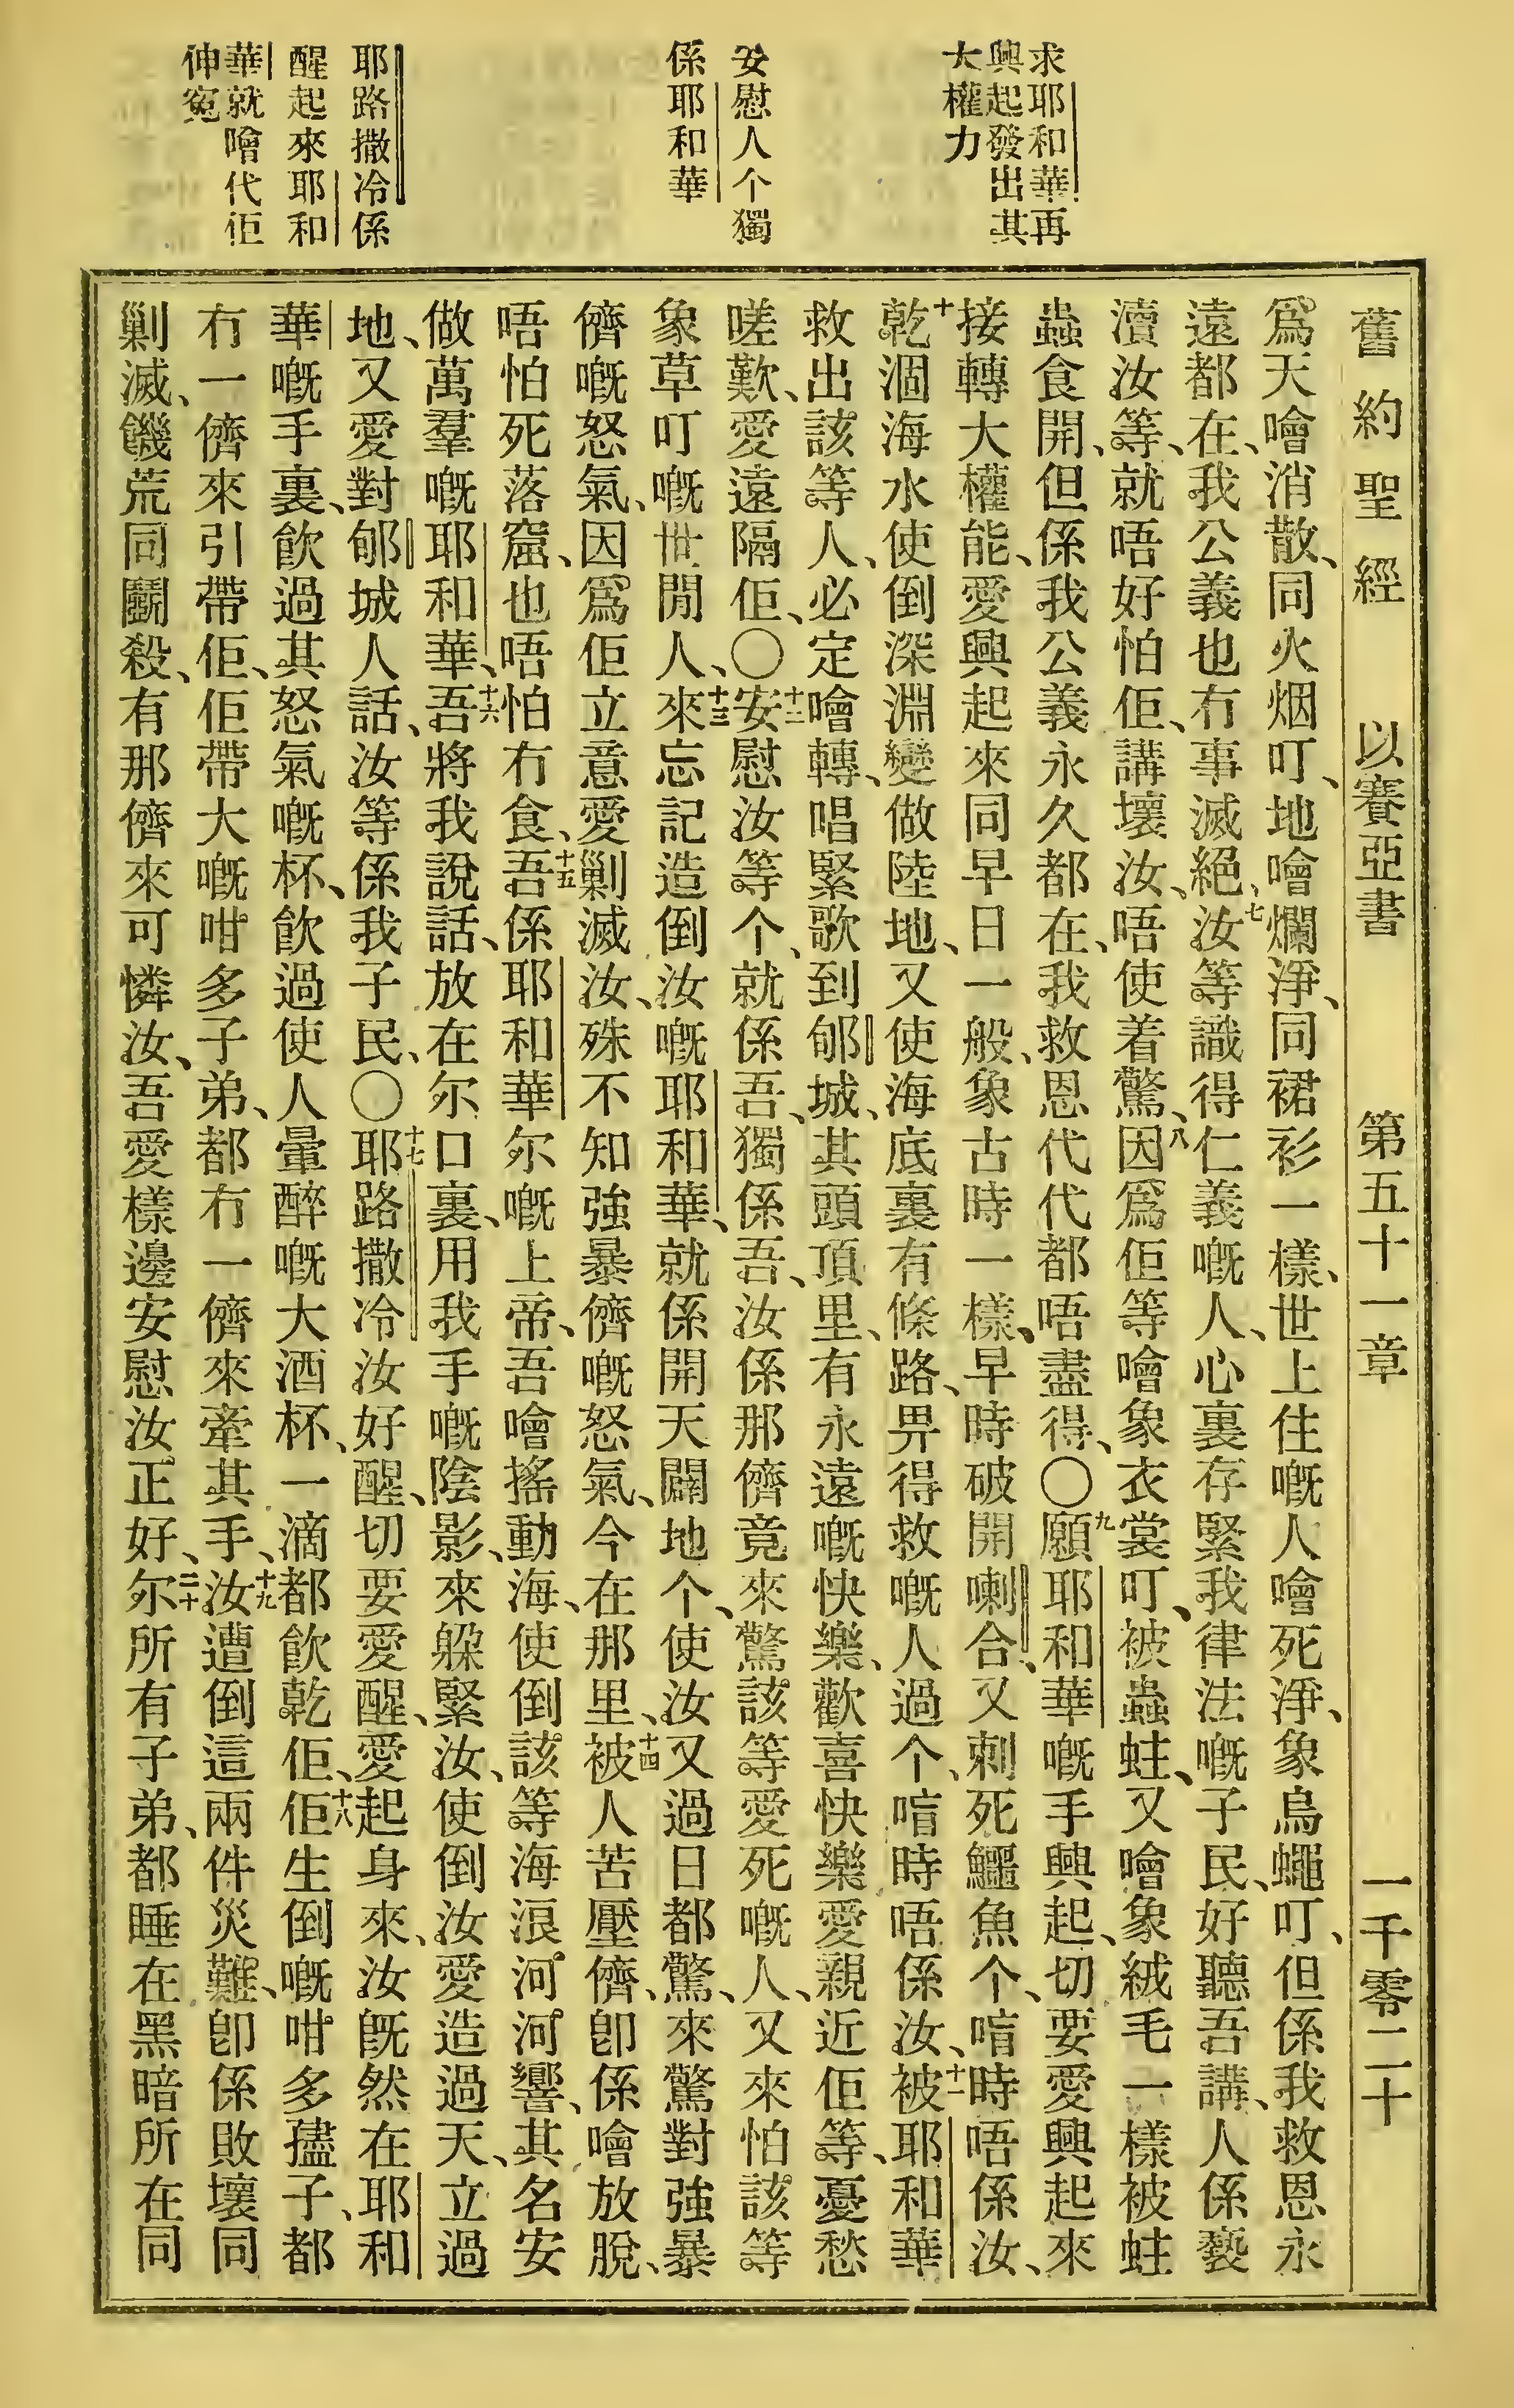 求耶和華再
興起發出其
大權力
安慰人个獨
係耶和華
耶路撒冷係
醒起來耶和
華就噲代佢
伸寃
舊約聖經 以賽亞書 第五十一章 一千零二十
爲天噲消散、同火烟叮、地噲爛淨、同裙衫一樣、世上住嘅人噲死淨、象烏蠅叮、但係我救恩永
遠都在、我公義也冇事滅絕、七汝等識得仁義嘅人、心裏存緊我律法嘅子民、好聽吾講、人係褻
瀆汝等、就唔好怕佢、講壞汝、唔使着驚、八因爲佢等噲象衣裳叮、被蟲蛀、又噲象絨毛一樣被蛀
蟲食開、但係我公義永久都在、我救恩代代都唔盡得、〇九願耶和華嘅手興起、切要愛興起來
接轉大權能、愛興起來同早日一般、象古時一樣、早時破開喇合、又刺死鱷魚个、唷時唔係汝、
十乾涸海水使倒深淵變做陸地、又使海底裏有條路、畀得救嘅人過个、唷時唔係汝、十一被耶和華
救出該等人、必定噲轉、唱緊歌到郇城、其頭頂里、有永遠嘅快樂、歡喜快樂愛親近佢等、憂愁
嗟歎、愛遠隔佢、〇十二安慰汝等个、就係吾、獨係吾、汝係那儕竟來驚該等愛死嘅人、又來怕該等
象草叮嘅世間人、十三來忘記造倒汝嘅耶和華、就係開天闢地个、使汝又過日都驚、來驚對強暴
儕嘅怒氣、因爲佢立意愛剿滅汝、殊不知強暴儕嘅怒氣、今在那里、十四被人苦壓儕、卽係噲放脫、
唔怕死落窟、也唔怕冇食、十五吾係耶和華尔嘅上帝、吾噲搖動海、使倒該等海浪河河響、其名安
做萬羣嘅耶和華、十六吾將我說話、放在尔口裏、用我手嘅陰影、來躱緊汝、使倒汝愛造過天、立過
地、又愛對郇城人話、汝等係我子民、〇十七耶路撒冷汝好醒、切要愛醒、愛起身來、汝旣然在耶和
華嘅手裏、飲過其怒氣嘅杯、飲過使人暈醉嘅大酒杯、一滴都飲乾佢、十八佢生倒嘅咁多孻子、都
冇一儕來引帶佢、佢帶大嘅咁多子弟、都冇一儕來牽其手、十九汝遭倒這兩件災難、卽係敗壞同
剿滅、饑荒同鬭殺、有那儕來可憐汝、吾愛樣邊安慰汝正好、二十尔所有子弟、都睡在黑暗所在同